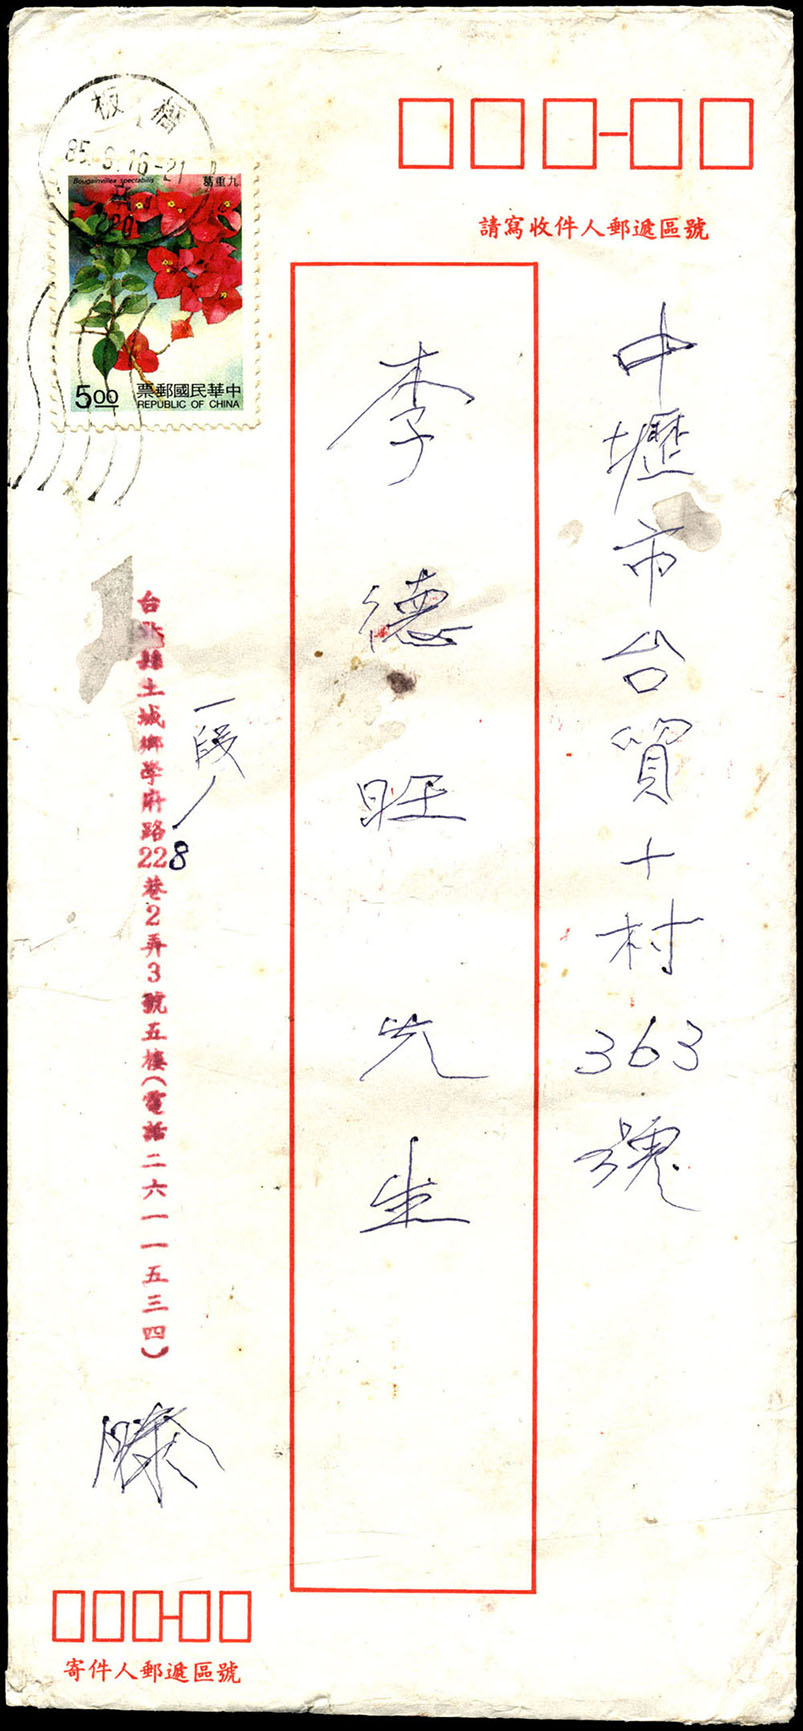 板橋
85.9.16-21
Bougainvillea spectabilis
九重葛
5.00
中華民國郵票
REPUBLIC OF CHINA
請寫收件人郵遞區號
中壢市台貿十村363號
李德旺先生
一段
台北縣土城鄉學府路228巷2弄3號五樓(電話二六一一五三四)
滕
寄件人郵遞區號